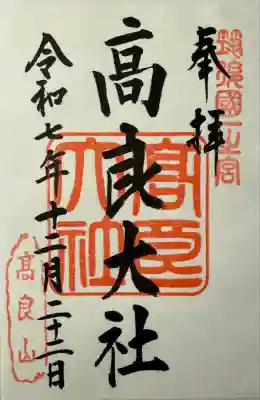 筑後國一之宮
奉拝
高良大社
髙良大社
令和七年十二月二十二日
高良山